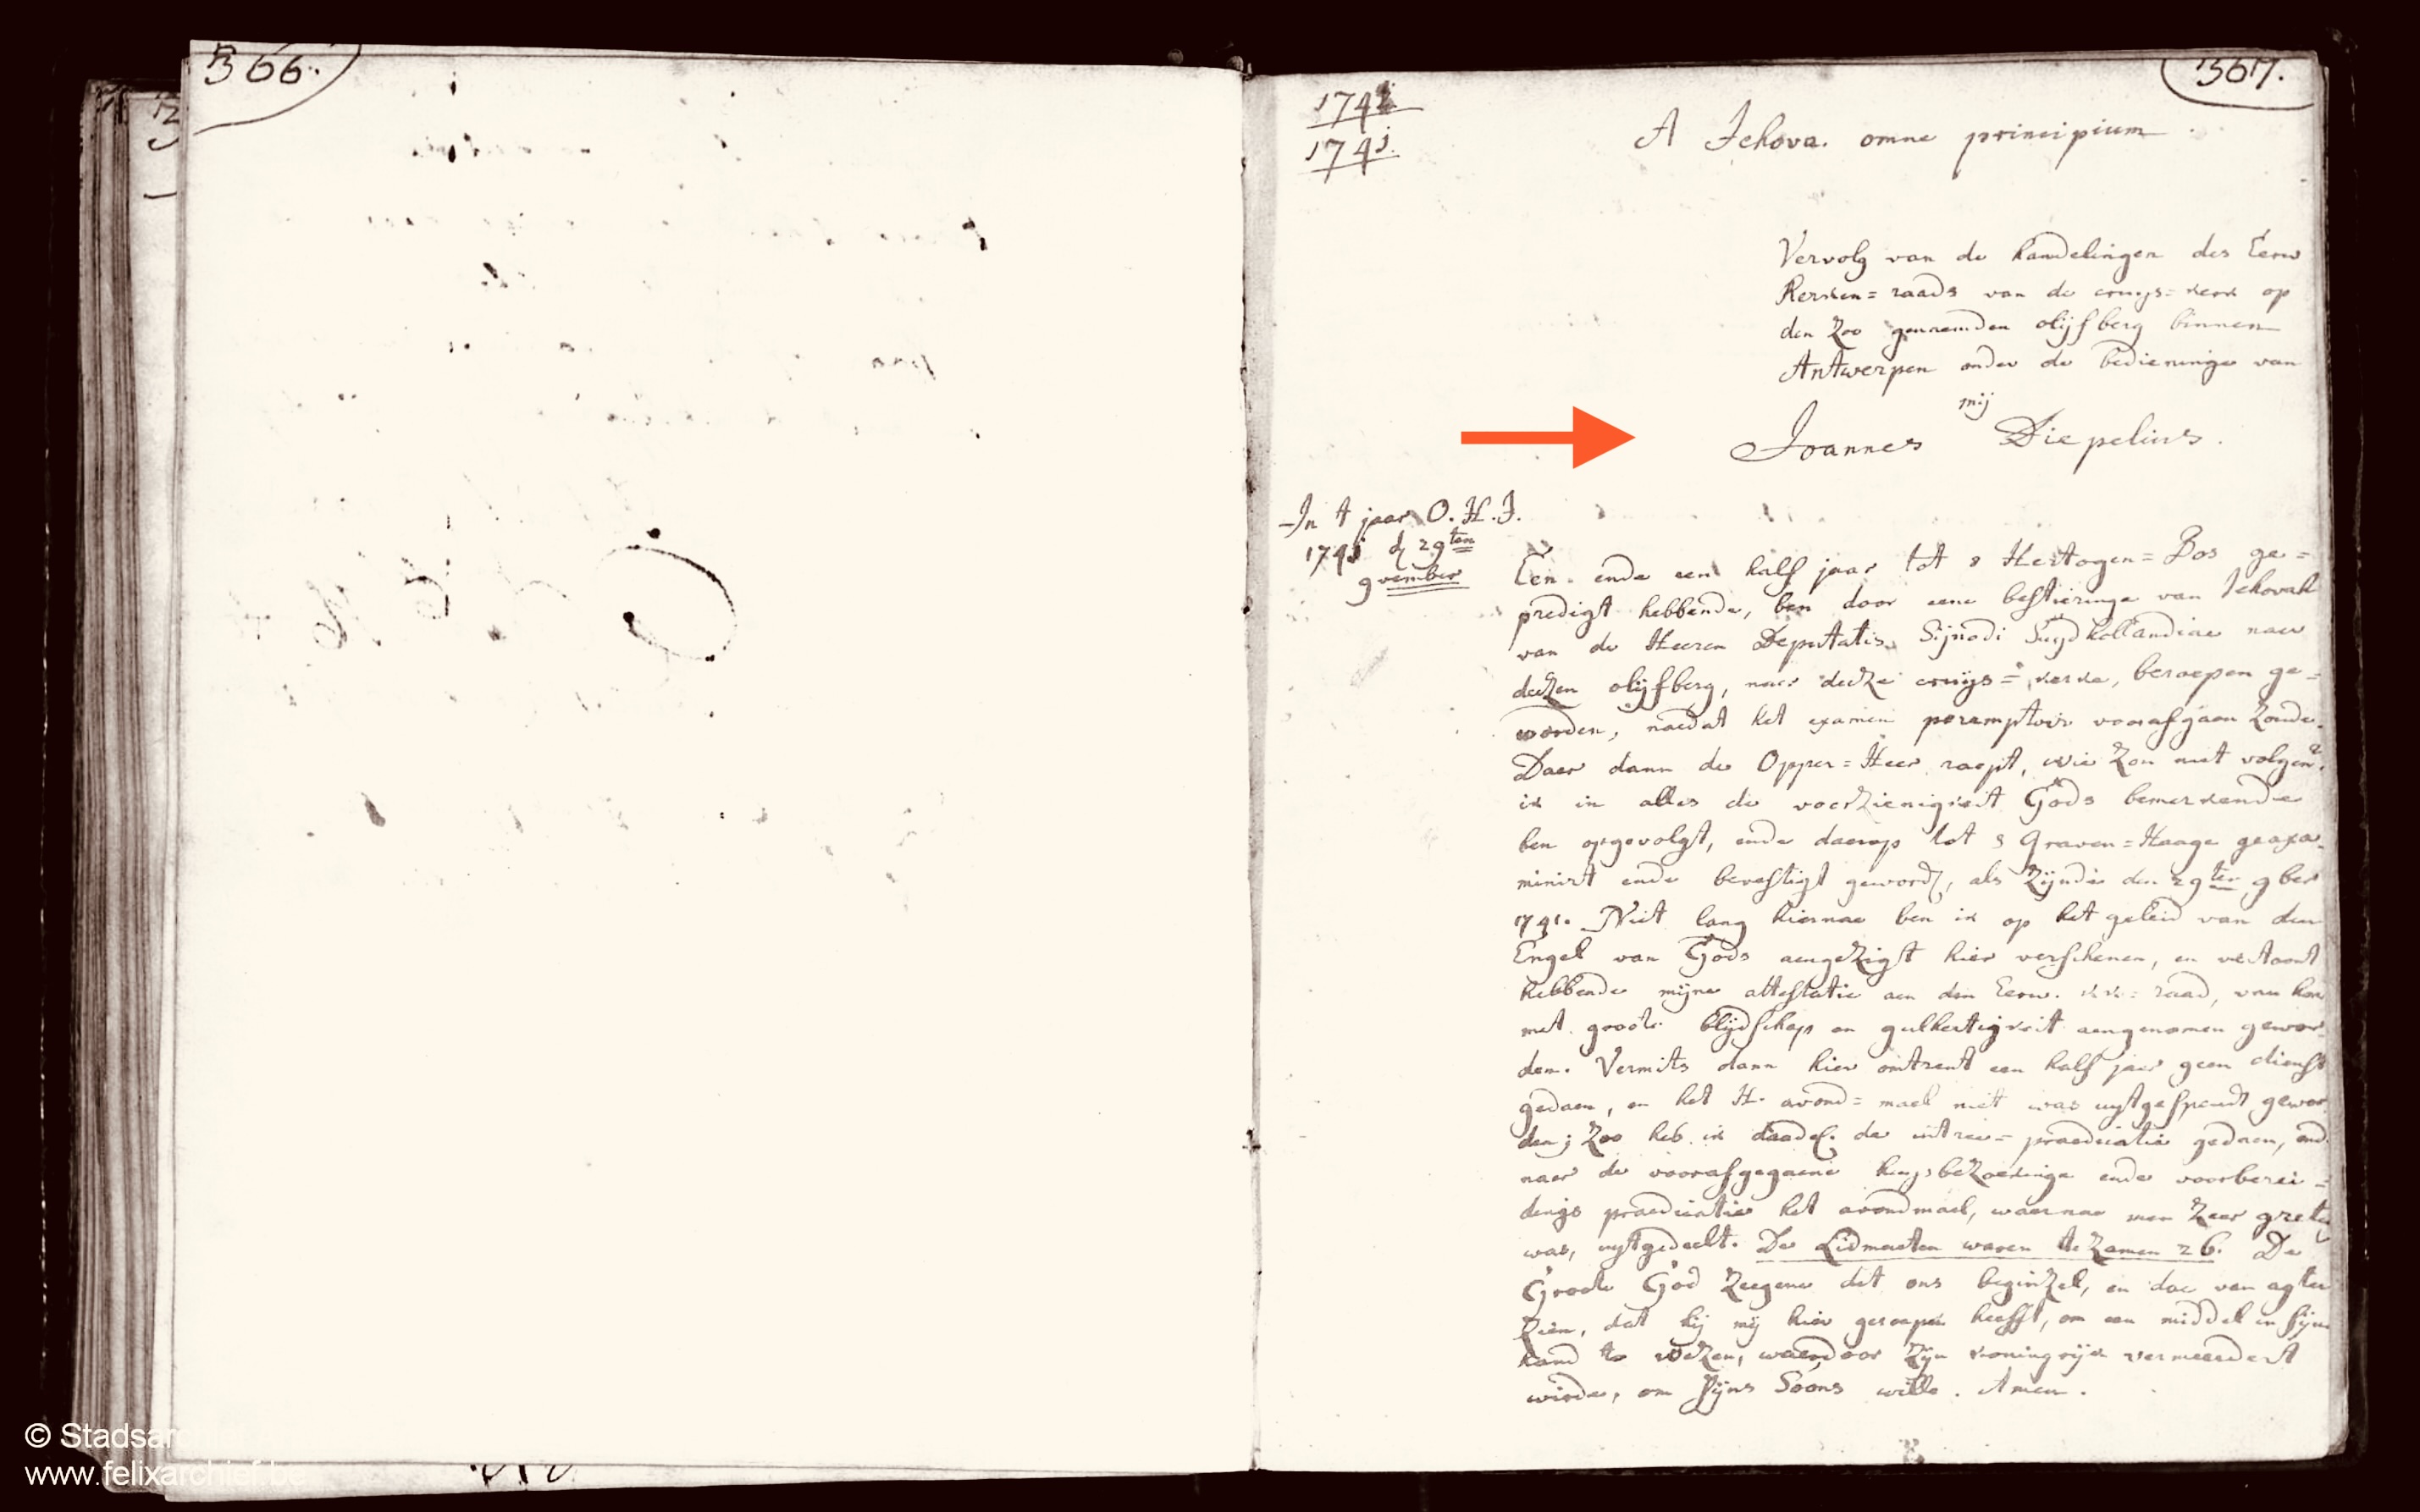 366.
367.
1741
1741.
A Jehova. omne principium.
Vervolg van de handelingen des Eerw
Kerken=raads van de cruys=kerk op
den Zoo genaemden olijfberg binnen
Antwerpen onder de bedieninge van
mij
Joannes Diepelius.
In t jaar O.H.J.
1741 d 29ten
9vember
Een ende een half jaar tot s Hertogen=Bos ge=
predigt hebbende, ben door eene bestieringe van Jehovah
van de Heeren Deputatis Sijnodi Suydhollandiae naer
deezen olijfberg, naer deeze cruys=kerke, beroepen ge=
worden, naedat het examen peremptoir voorafgaan Zoude.
Daer dann de Opper=Heer roept, wie Zou niet volgen?
ik in alles de voorzienigkeit Gods bemerkende
ben opgevolgt, ende daerop tot s Graven=Haage geexa=
minirt ende bevestigt geword, als Zijnde den 29ten 9ber
1741. Niet lang hiernae ben ik op het geleid van den
Engel van Gods aengeZigt hier verschenen, en vertoont
hebbende mijne attestatie aen den Eerw. kk=raad, van hen
met groote blijdschap en gulhertigkeit aengenomen gewor=
den. Vermits dann hier omtrent een half jaer geen dienst
gedaen, en het H. avond=mael niet was uytgespendt gewor
den; Zoo heb ik daadel. de intree=praedicatie gedaen, end
naer de voorafgegaene huysbeZoekinge ende voorberei=
dings praedicatie het avondmael, waernae men Zeer gretig
was, uytgedeelt. De Lidmaeten waren te Zamen 26. De
Groote God Zeegene dit ons beginZel, en doe van agter
Zien, dat hij mij hier geroepen heefft, om een middel in sijne
hand te weZen, waerdoor Zijn koningrijk vermeerdert
wierde, om Sijns Soons wille. Amen.
© Stadsarchief
www.felixarchief.be